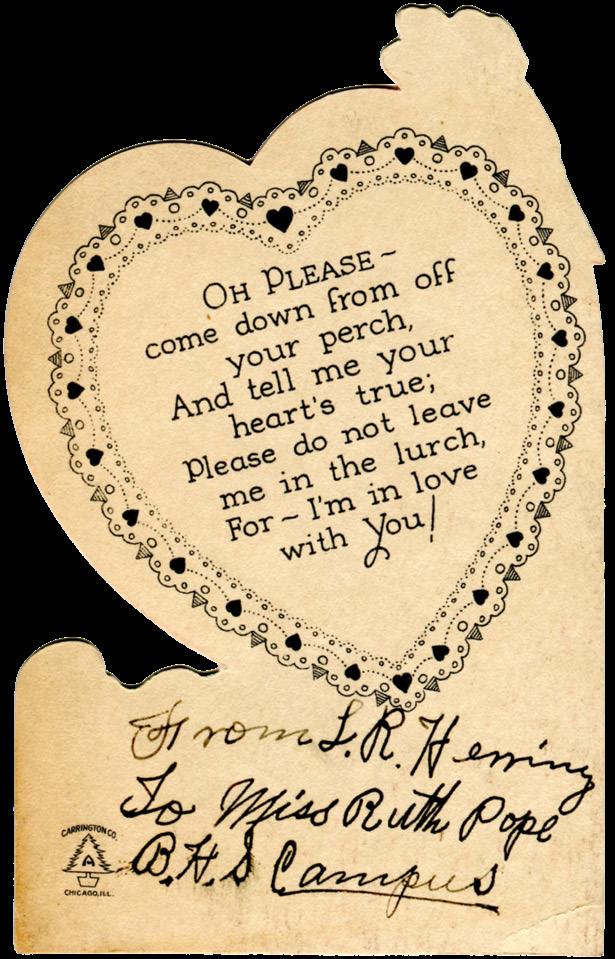 OH PLEASE~
come down from off
your perch,
And tell me your
heart's true;
Please do not leave
me in the lurch,
For~I'm in love
with you!
From L.R. Herring
To Miss Ruth Pope
B.H.S Campus
CARRINGTON CO.
A
CHICAGO, ILL.